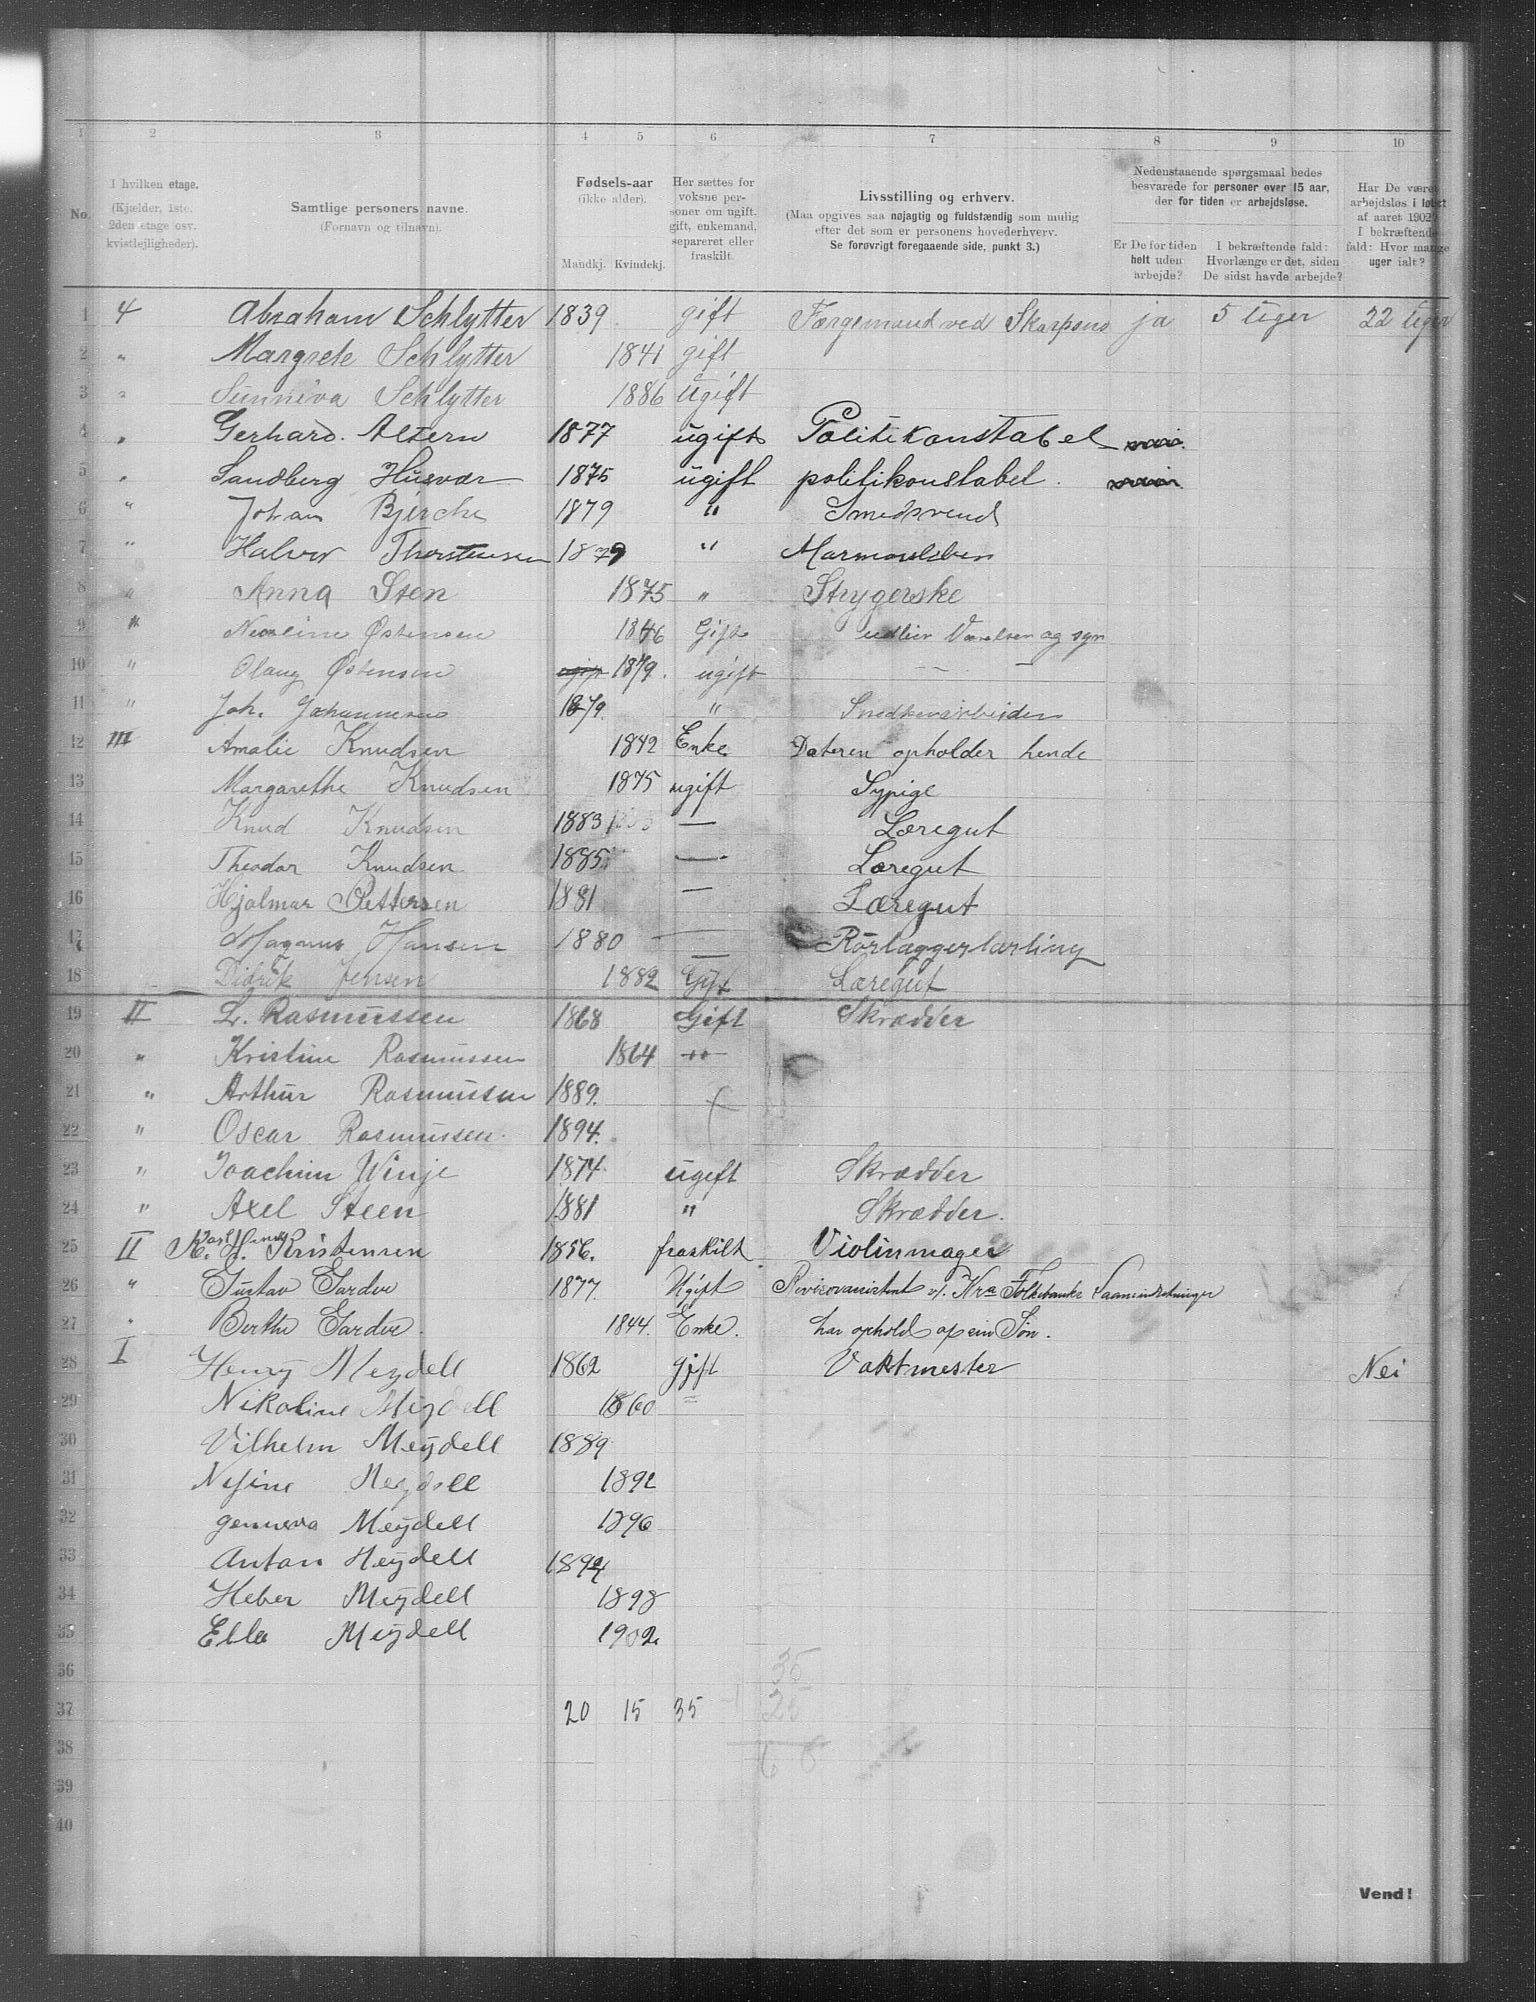 1 2 3 4 5 6 7 8 9 10
No.
I hvilken etage.
(Kjælder, 1ste, 2den etage osv. kvistlejligheder).
Samtlige personers navne.
(Fornavn og tilnavn).
Fødsels-aar
(ikke alder).
Mandkj. Kvindekj.
Her sættes for voksne personer om ugift, gift, enkemand, separeret eller fraskilt.
Livsstilling og erhverv.
(Maa opgives saa nøjagtig og fuldstændig som mulig efter det som er personens hovederhverv.
Se forøvrigt foregaaende side, punkt 3.)
Nedenstaaende spørgsmaal bedes besvarede for personer over 15 aar, der for tiden er arbejdsløse.
Er De for tiden helt uden arbejde?
I bekræftende fald: Hvorlænge er det, siden De sidst havde arbejde?
Har De været arbejdsløs i løbet af aaret 1902? I bekræftende fald: Hvor mange uger ialt?
1 4 Abraham Schlytter 1839 gift Færgemand ved Skarpsno ja 5 Uger 22 Uger
2 " Margrete Schlytter 1841 gift
3 " Sunniva Schlytter 1886 Ugift
4 " Gerhard. Altern 1877 ugift Politikonstabel
5 " Sandberg Husvær 1875 ugift politikonstabel.
6 " Johan Bjerche 1879 " Smedsvend
7 " Halvor Thorstensen 1879 "
8 " Anna Sten 1875 " Strygerske
9 " Østensen 1846 Gift udleier Værelser og syr
10 " Olaug Østensen 1879. ugift — —
11 " Joh. Johannesen 1879. " Snedkerarbeider
12 III Amalie Knudsen 1842 Enke Dateren opholder hende
13 Margarethe Knudsen 1875 ugift Sypige
14 Knud Knudsen 1883 — Læregut
15 Theodor Knudsen 1885. — Læregut
16 Hjalmar Pettersen 1881 — Læregut
17 Magnus Hansen 1880 — Rörlæggerlærling
18 Didrik Jensen 1882 Gift Læregut
19 II L. Rasmussen 1868 Gift Skrædder
20 " Kristine Rasmussen 1864 "
21 " Arthur Rasmussen 1889.
22 " Oscar Rasmussen. 1894.
23 " Joachim Winje 1874. ugift Skrædder
24 " Axel Steen 1881 " Skrædder.
25 II K. H. Kristensen 1856. fraskilt Violinmager
26 " Gustav Gardve 1877 Ugift Revisorassistent v/. Kra Folkebanks Saamindretninger
27 " Berthe Gardve. 1844. Enke. har ophold af sin Søn.
28 I Henry Meydell 1862 gift Vaktmester Nei
29 Nikoline Meydell 1860 =
30 Vilhelm Meydell 1889
31 Nefine Meydell 1892
32 Genneva Meydell 1896
33 Anton Meydell 1894
34 Heber Meydell 1898
35 Ella Meydell 1902.
36 35
37 20 15 35 25
38 60
39
40
Vend!